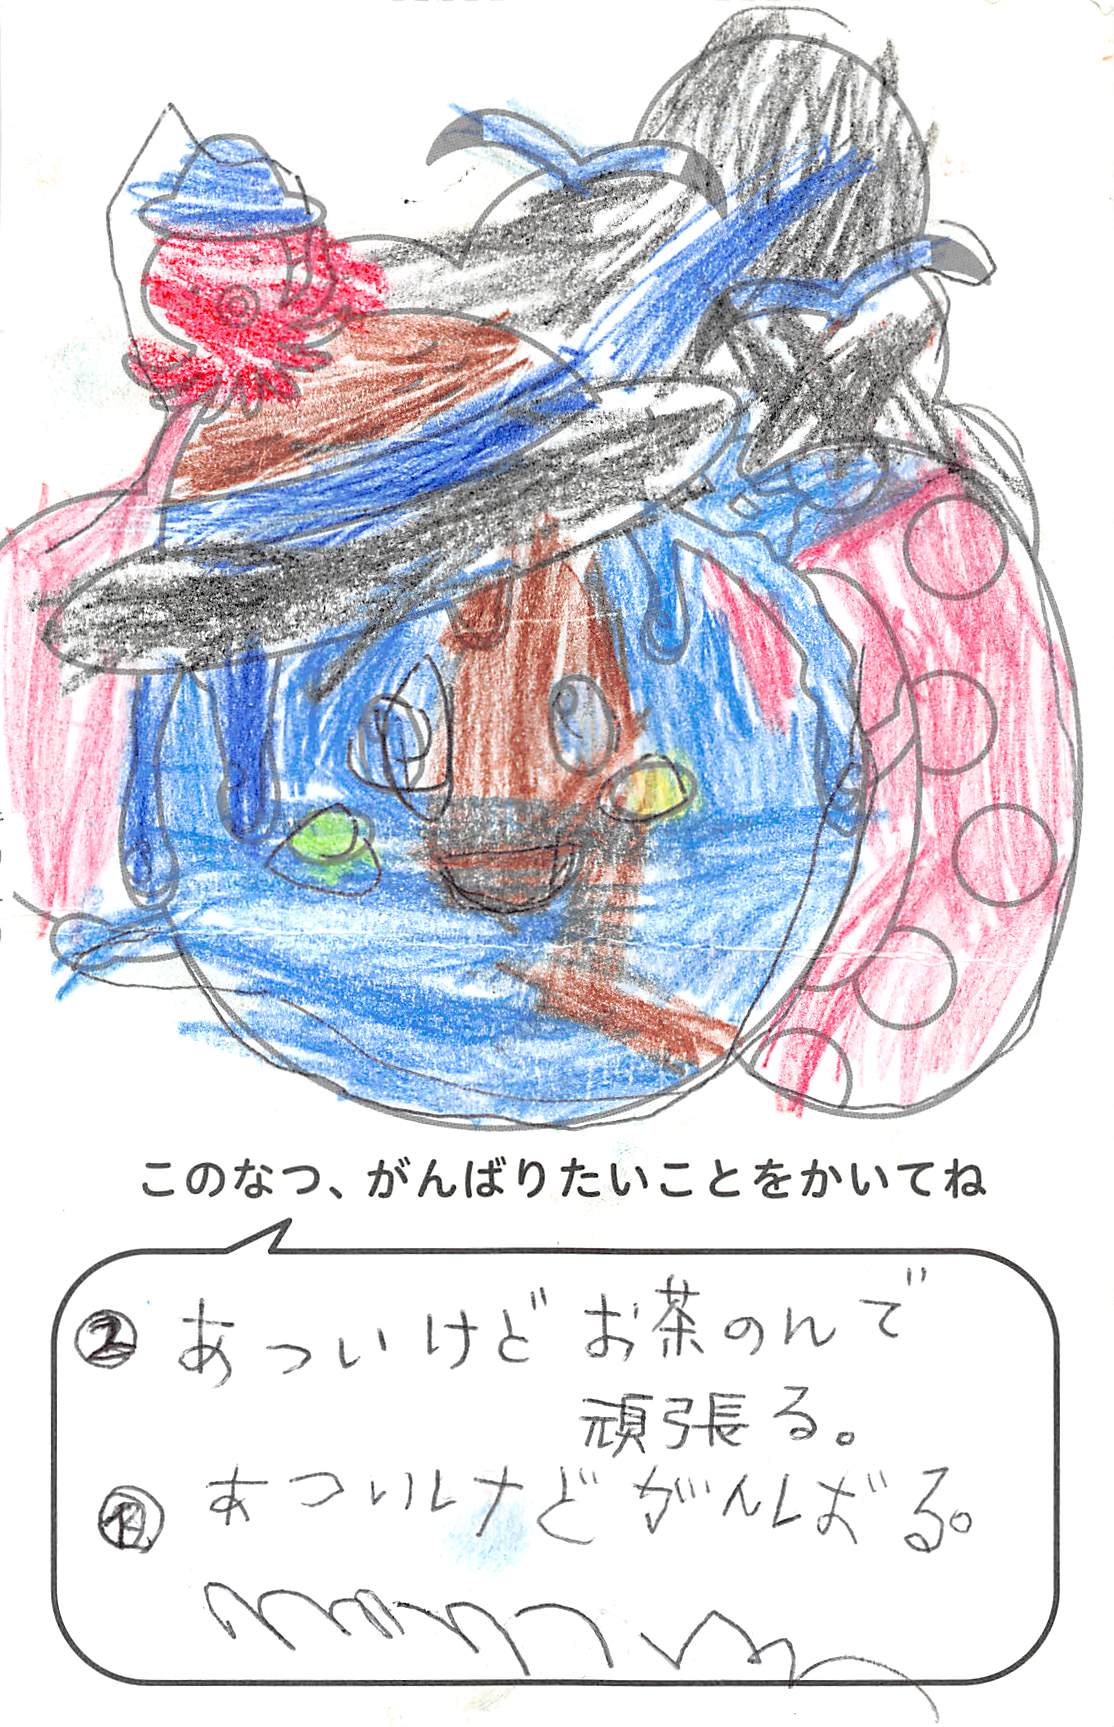 このなつ、がんばりたいことをかいてね
あついけど お茶のんで
頑張る。
あついけど がんばる。